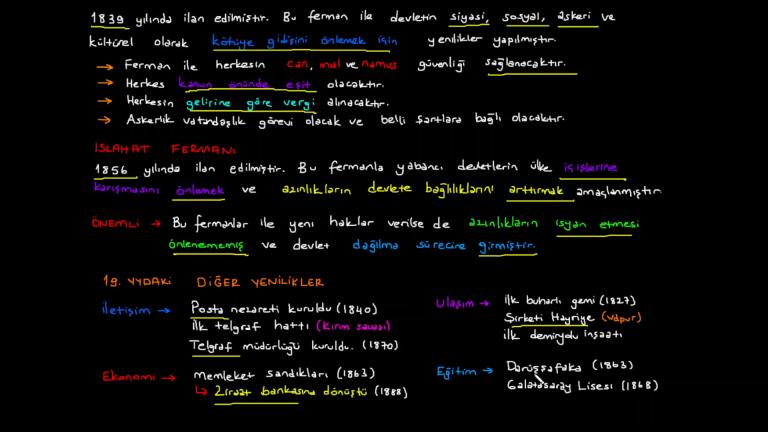 1839 yılında ilan edilmiştir. Bu ferman ile devletin siyasi, sosyal, askeri ve
kültürel olarak kötüye gidişini önlemek için yenilikler yapılmıştır.
→ Ferman ile herkesin can, mal ve namus güvenliği sağlanacaktır.
→ Herkes kanun önünde eşit olacaktır.
→ Herkesin gelirine göre vergi alınacaktır.
→ Askerlik vatandaşlık görevi olacak ve belli şartlara bağlı olacaktır.
ISLAHAT FERMANI
1856 yılında ilan edilmiştir. Bu fermanla yabancı devletlerin ülke iç işlerine
karışmasını önlemek ve azınlıkların devlete bağlılıklarını arttırmak amaçlanmıştır
ÖNEMLİ → Bu fermanlar ile yeni haklar verilse de azınlıkların isyan etmesi
önlenememiş ve devlet dağılma sürecine girmiştir.
19. YYDAKİ DİĞER YENİLİKLER
iletişim → Posta nezareti kuruldu (1840)
ilk telgraf hattı (Kırım savaşı)
Telgraf müdürlüğü kuruldu. (1870)
Ekonomi → memleket sandıkları (1863)
↳ Ziraat bankasına dönüştü (1888)
Ulaşım → ilk buharlı gemi (1827)
Şirketi Hayriye (vapur)
ilk demiryolu inşaatı
Eğitim → Darüşşafaka (1863)
Galatasaray Lisesi (1868)